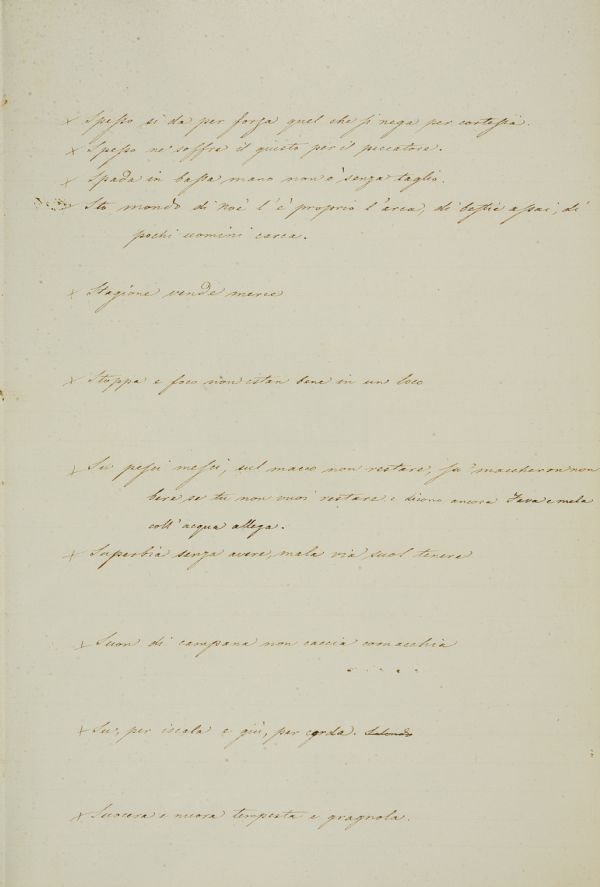 x Spesso si da per forza quel che si nega per cortesia.
x Spesso ne soffre il giusto per il peccatore.
x Spada in bassa mano non è senza taglio.
x Sto mondo di Noè l'è proprio l'arca, di bestie assai, di
pochi uomini carca.
x Stagione vende merce
x Stoppa e foco non istan bene in un loco
x Su pesci mesci, sul macco non restare, su maccheron non
bere se tu non vuoi restare e dicono ancora Fava e mela
coll' acqua allega.
x Superbia senza avere, mala via suol tenere
x Suon di campana non caccia cornacchia
x Su, per iscala e giù, per corda.
x Suocera e nuora tempesta e gragnola.